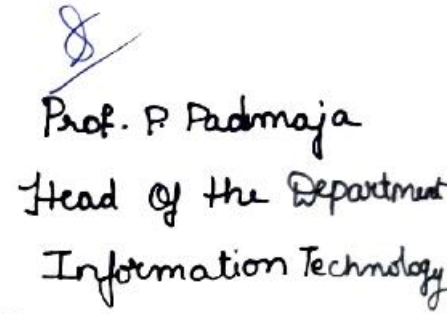 Prof. P. Padmaja
Head of the Department
Information Technology